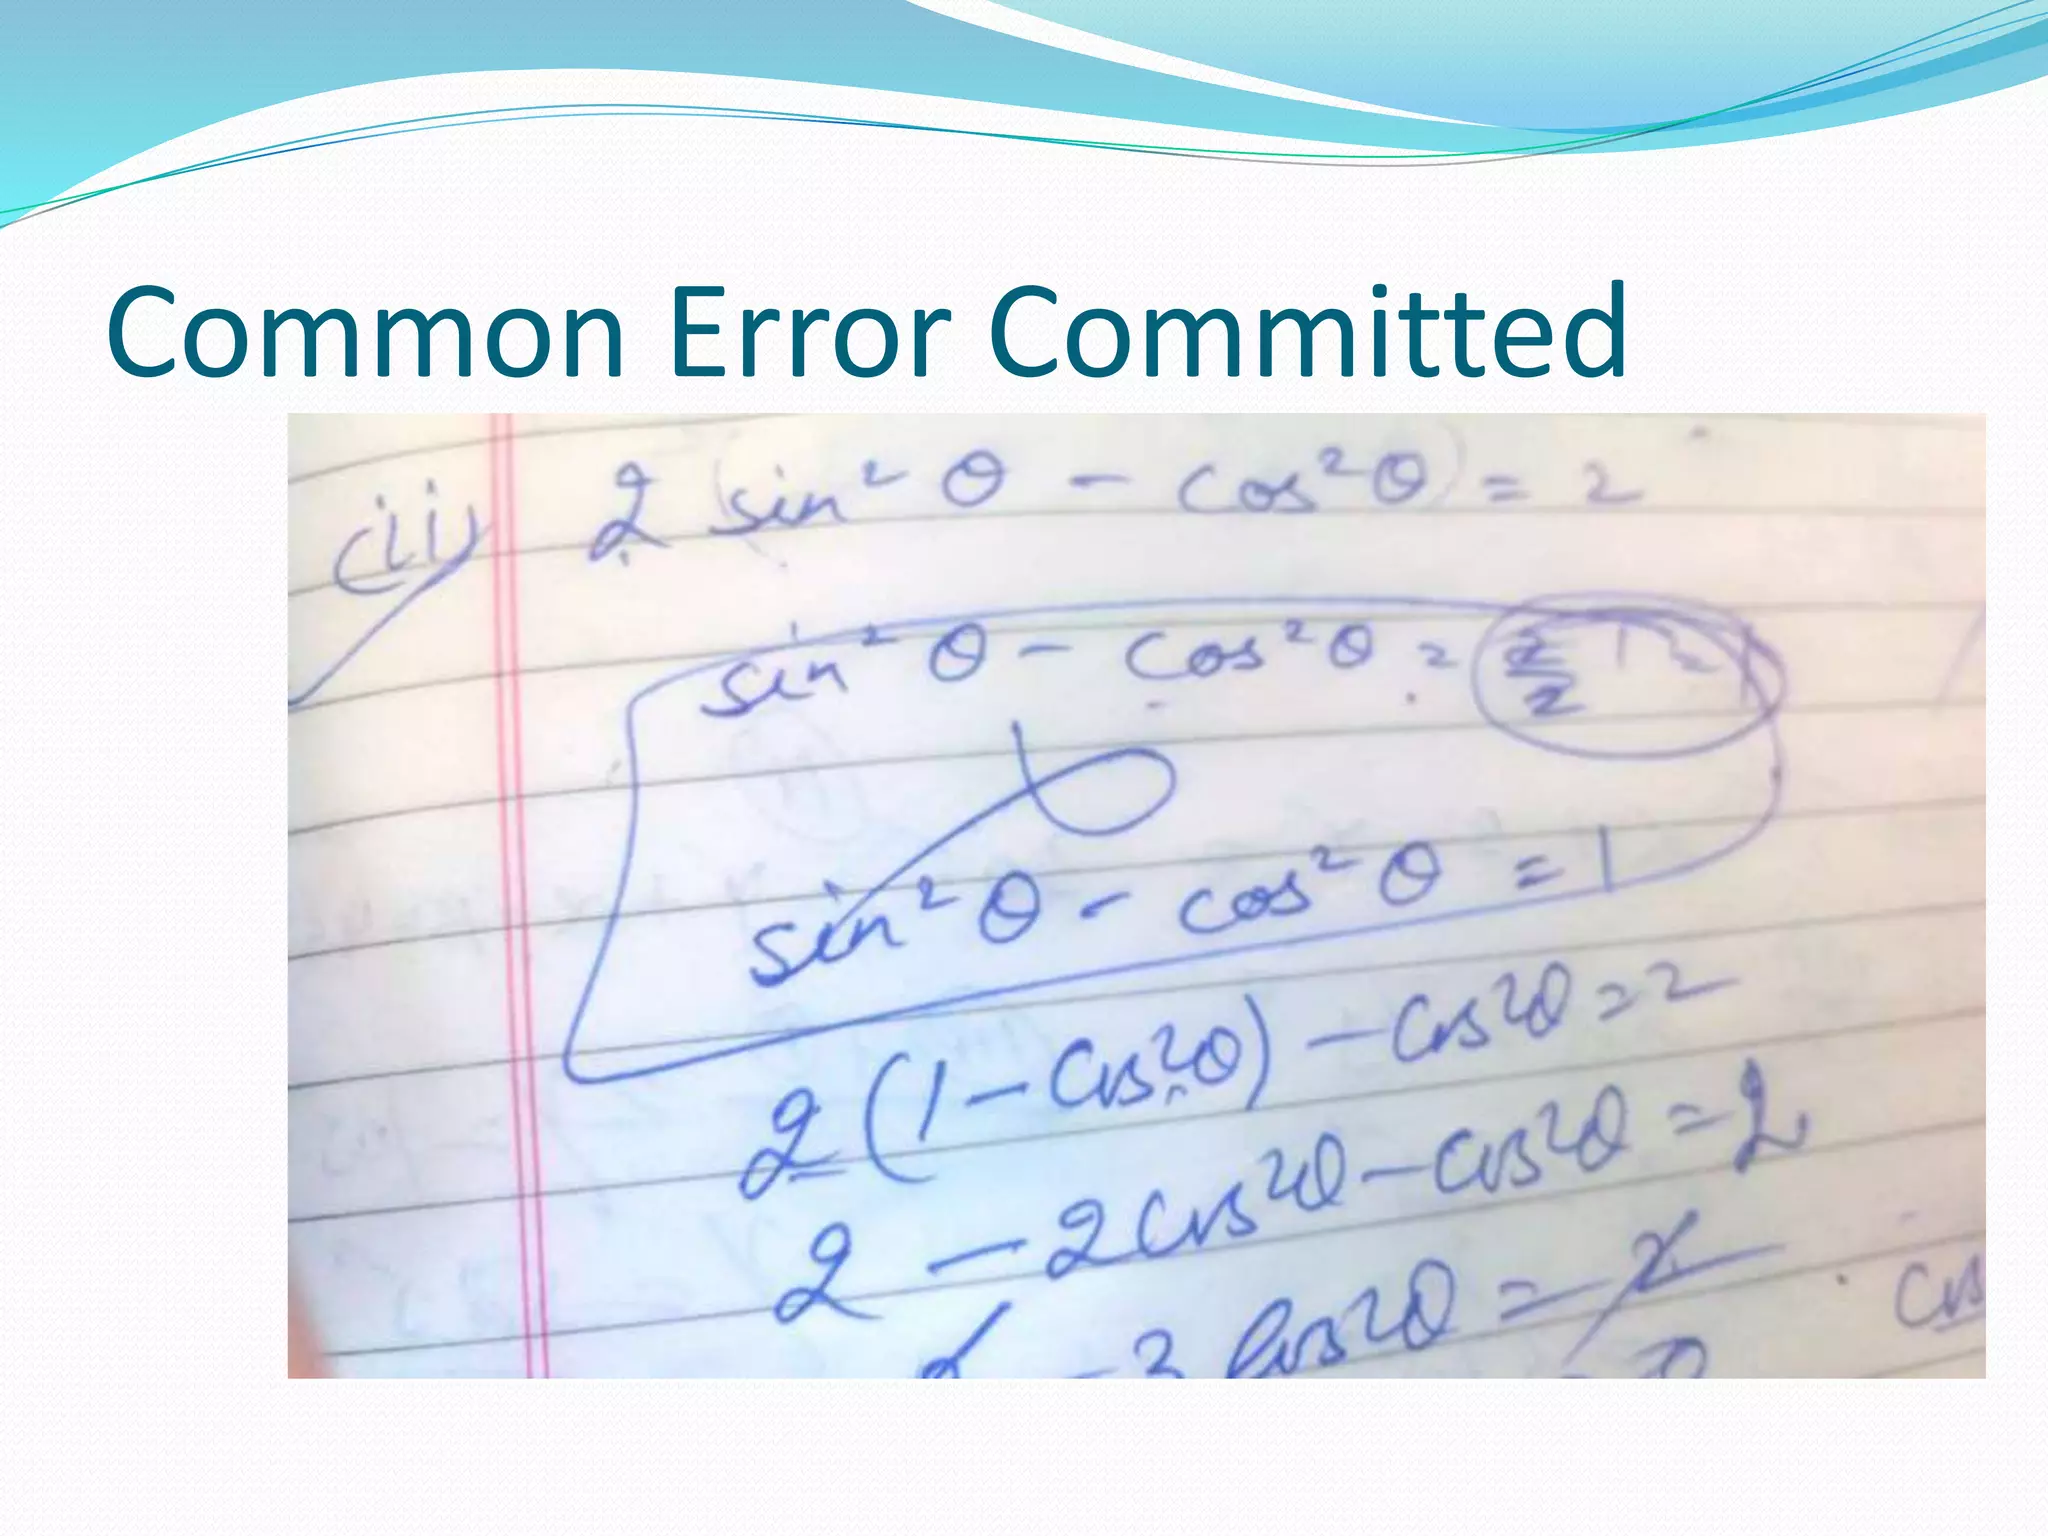 Common Error Committed
(ii) 2 (sin² θ - cos² θ) = 2
sin² θ - cos² θ = 2/2 = 1
sin² θ - cos² θ = 1
2 (1 - cos²θ) - cos²θ = 2
2 - 2cos²θ - cos²θ = 2
2 - 3 cos²θ = 2 cos
0